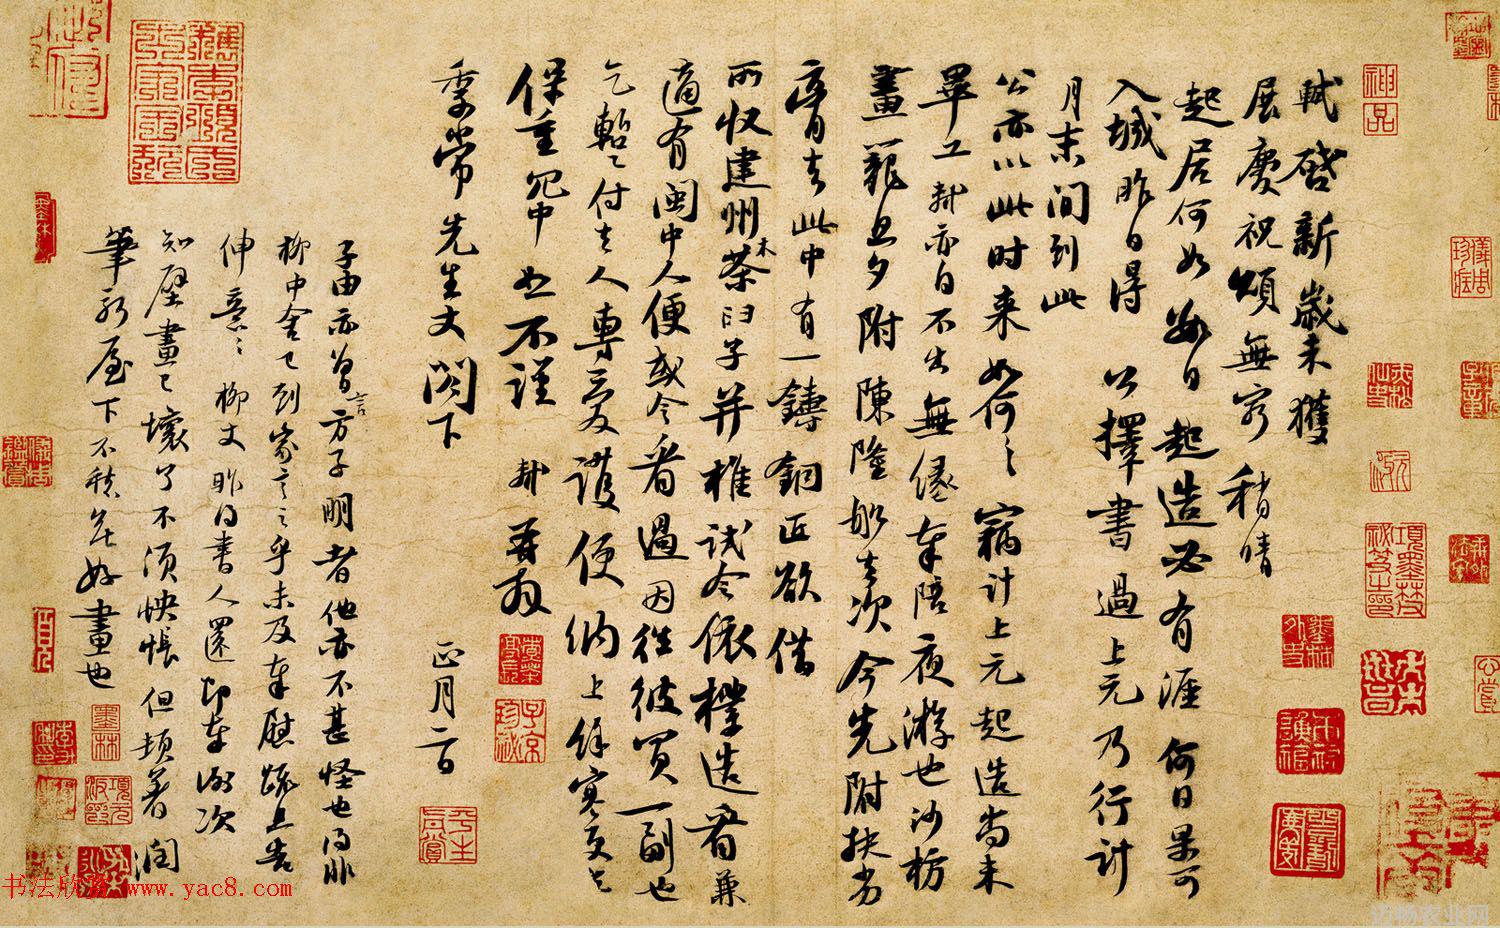 軾啓新歲未獲
展慶祝頌無窮稍晴
起居何如數日起造必有涯何日果可
入城昨日得公擇書過上元乃行計
月末間到此
公亦以此時来如何〻竊計上元起造尚未
畢工軾亦自不出無緣奉陪夜遊也沙枋
畫籠旦夕附陳隆船去次今先附扶劣
膏去此中有一鑄銅匠欲借
所收建州木茶臼子并椎試令依樣造看兼
適有閩中人便或令看過因往彼買一副也
乞暫付去人專愛護便納上餘寒更乞
保重冗中恕不謹軾再拜
季常先生丈閤下
正月二日
子由亦曾言方子明者他亦不甚怪也得非
柳中舍已到家言之乎未及奉慰疏且告
伸意〻柳丈昨得書人還即奉謝次
知壁畫已壞了不須怏悵但頓著潤
筆新屋下不愁無好畫也
神品
項墨林秘笈之印
子京珍藏
平生真賞
墨林
書法欣賞 www.yac8.com